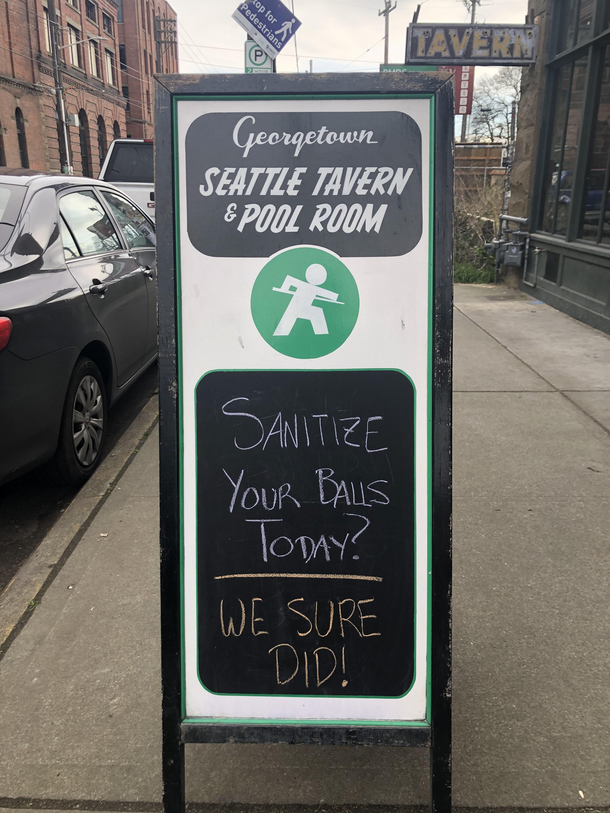 Stop for
Pedestrians
P
TAVERN
Georgetown
SEATTLE TAVERN
& POOL ROOM
SANITIZE
YOUR BALLS
TODAY?
WE SURE
DID!